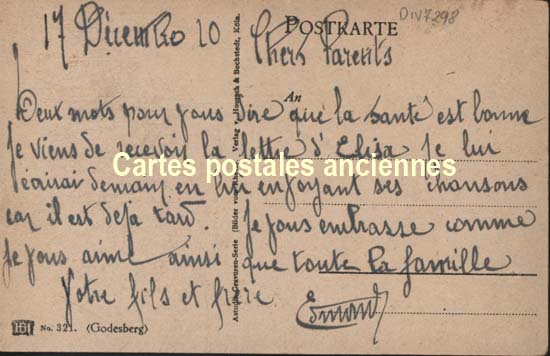 17 Décembre 20
POSTKARTE
DIV7298
Chers Parents
An
Deux mots pour vous dire que la santé est bonne
Je viens de recevoir la lettre d'Elisa Je lui
écrirai demain en lui envoyant ses chansons
Cartes postales anciennes
car il est déjà tard. Je vous embrasse comme
Je vous aime ainsi que toute la famille
Votre fils et frère
Edmond
No. 321. (Godesberg)
Verlag Hoursch & Bechstedt, Köln.